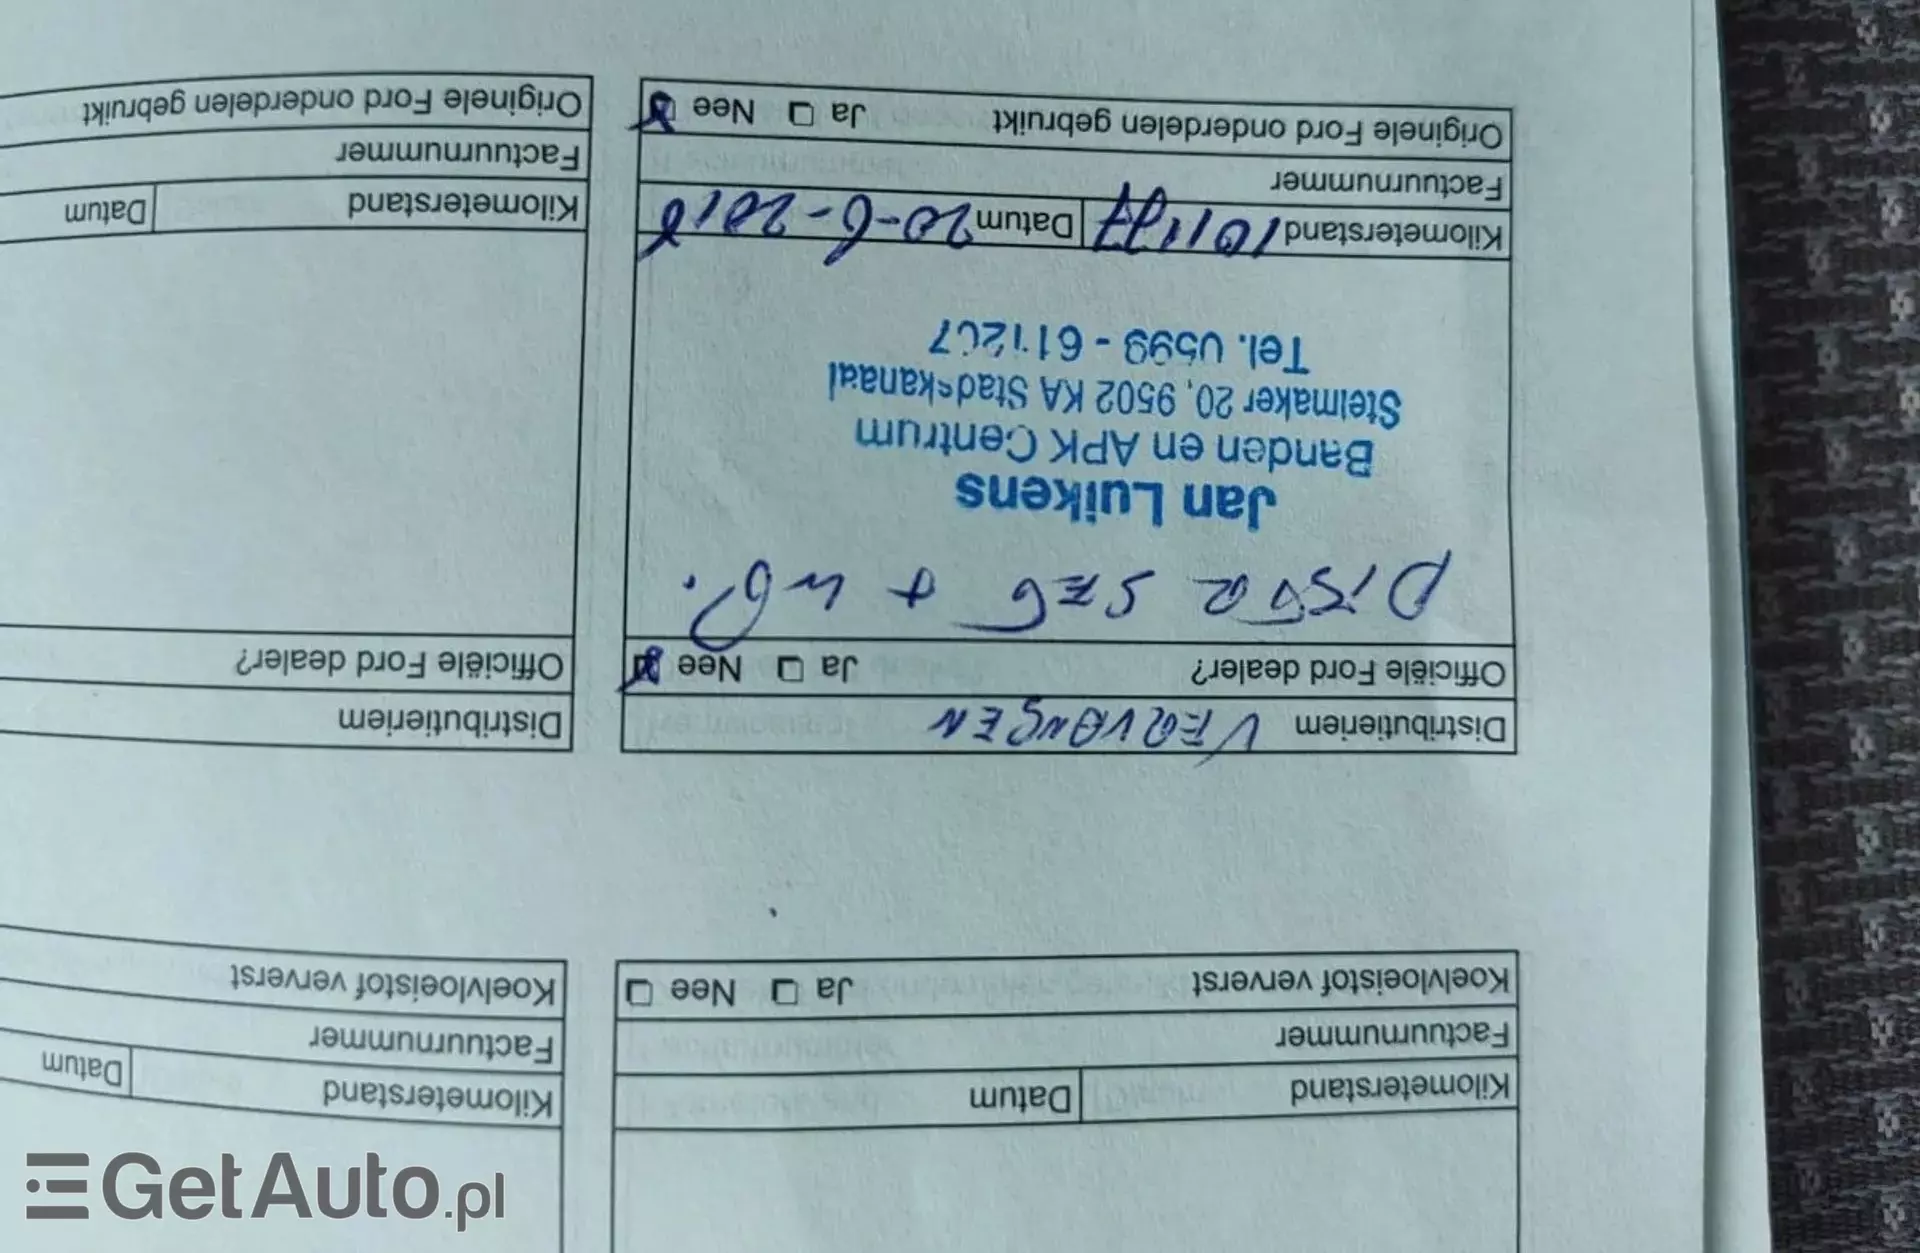 Kilometerstand Datum
Factuurnummer
Koelvloeistof ververst Ja Nee
Kilometerstand Datum
Factuurnummer
Koelvloeistof ververst
Distributieriem VERVANGEN
Officiële Ford dealer? Ja Nee
DISTR SET + WP.
Jan Luikens
Banden en APK Centrum
Stelmaker 20, 9502 KA Stadskanaal
Tel. 0599 - 611207
Kilometerstand 101197 Datum 20-6-2018
Factuurnummer
Originele Ford onderdelen gebruikt Ja Nee
Distributieriem
Officiële Ford dealer?
Kilometerstand Datum
Factuurnummer
Originele Ford onderdelen gebruikt
GetAuto.pl